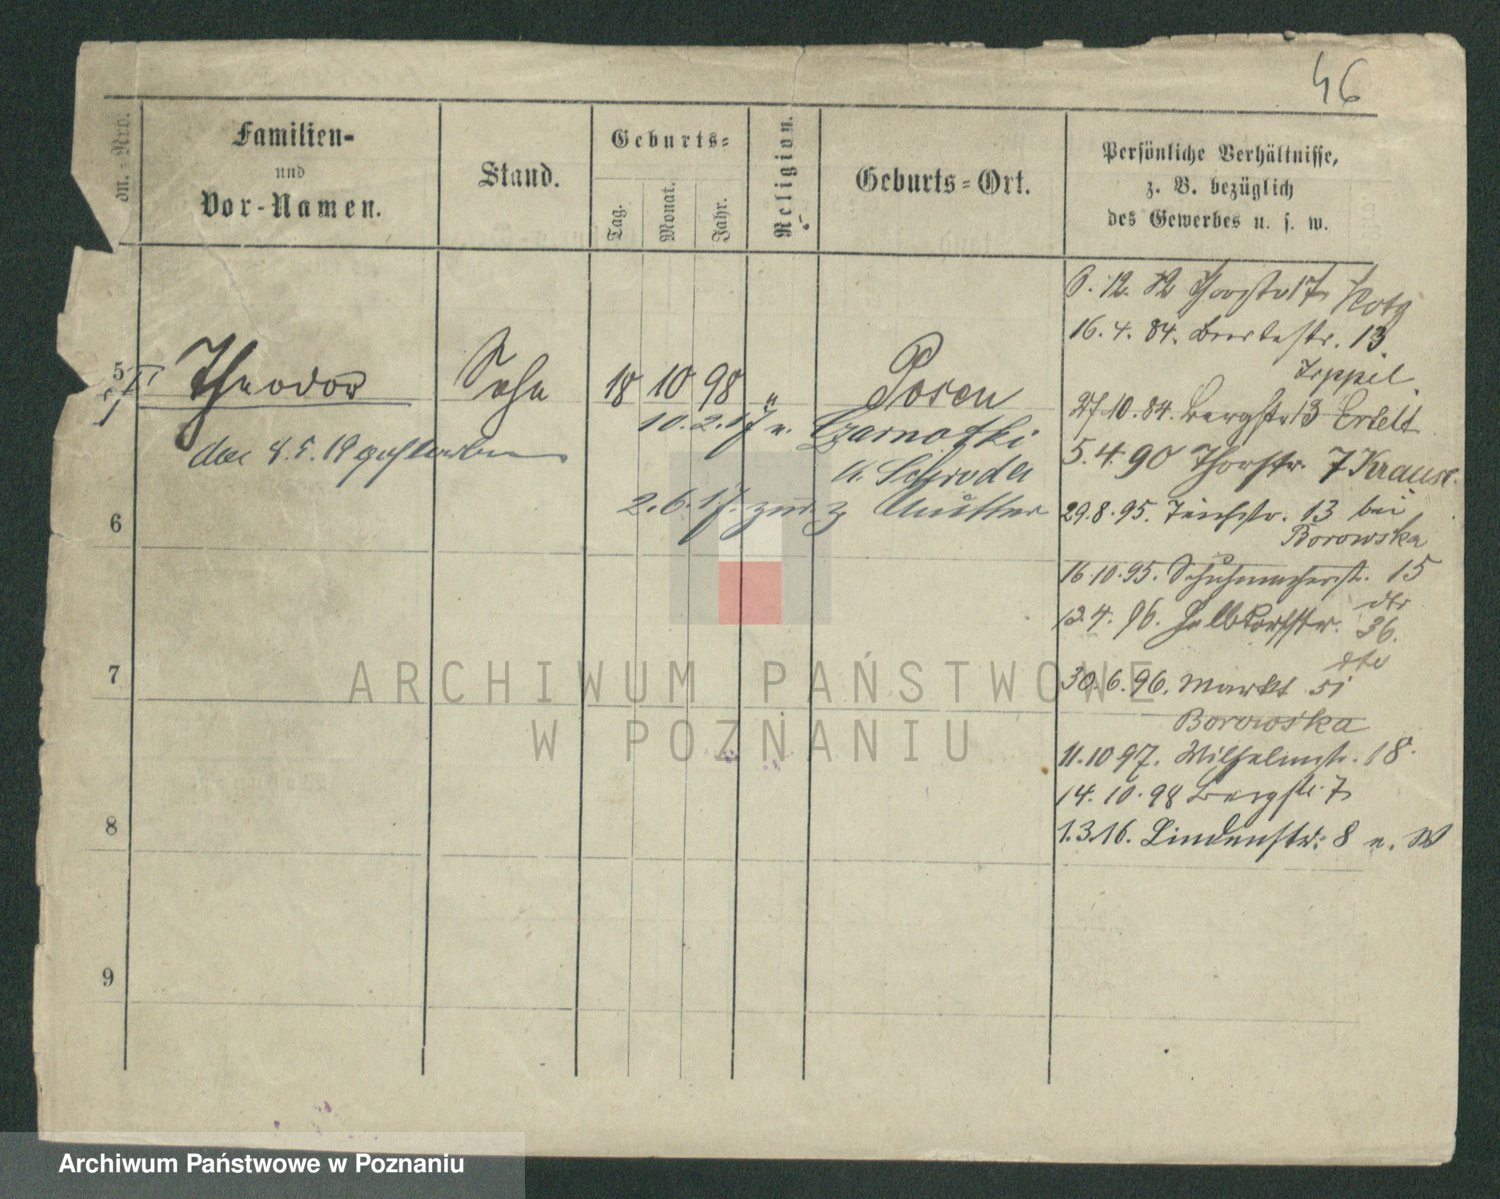 46
dn.=Nro.
Familien-
und
Vor-Namen.
Stand.
Geburts=
Tag.
Monat.
Jahr.
Religion.
Geburts=Ort.
Persönliche Verhältnisse,
z. B. bezüglich
des Gewerbes u. s. w.
6. 12. 82 Thorstr 17
16. 4. 84.
13
5
Theodor
Sohn
18
10
98
"
Posen
27.10.84. Bergstr 13
10.2.17 n.
den 8.5.19 gestorben
5.4.90 Thorstr. 7 Krause
2.6.17. zur. z Mutter
29.8.95. Teichstr. 13 bei
Borowska
6
16.10.95. Schuhmacherstr. 15
dto
13.4.96. Halbdorfstr. 36.
dto
7
30.6.96. Markt 51
Borowska
11.10 97. Wilhelmstr. 18.
14.10.98 Bergstr. 7
8
1.3.16. Lindenstr. 8 n. W
9
ARCHIWUM PAŃSTWOWE
W POZNANIU
Archiwum Państwowe w Poznaniu